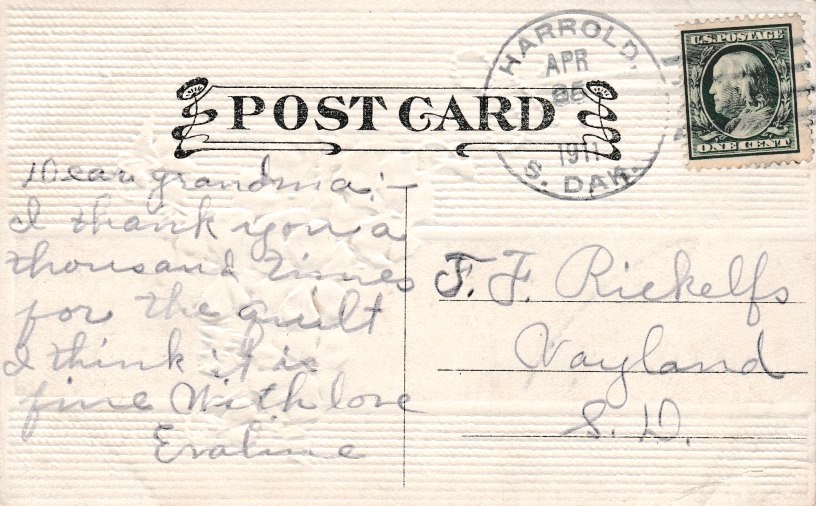 HARROLD.
APR
25
1911
S. DAK.
U.S. POSTAGE
ONE CENT
POST CARD
Dear grandma:-
I thank you a
thousand times
for the quilt
I think it is
fine With love
Evaline
F. F. Rickelfs
Vayland
S. D.